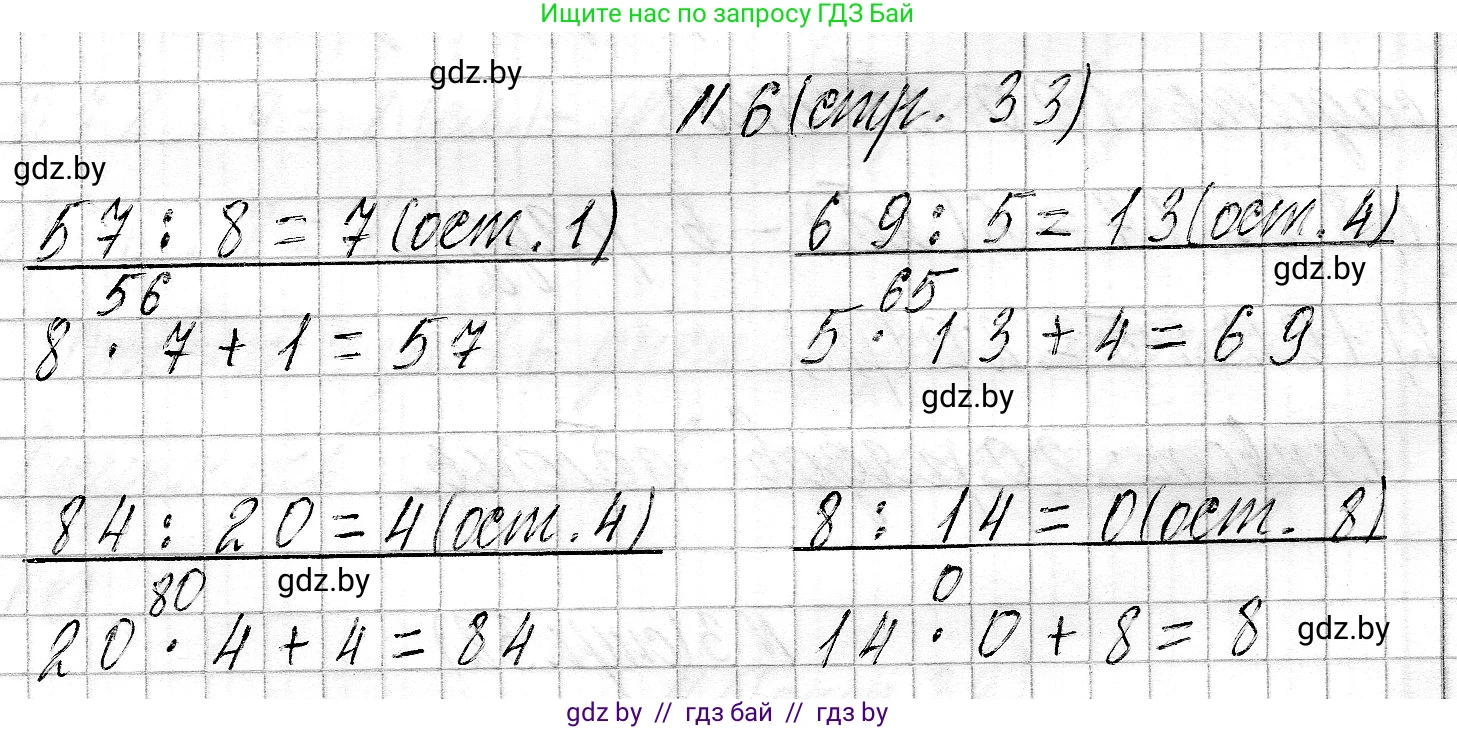 Ищите нас по запросу ГДЗ Бай
gdz.by
№6 (стр. 33)
gdz.by
57 : 8 = 7 (ост. 1)
56
8 · 7 + 1 = 57
69 : 5 = 13 (ост. 4)
gdz.by
65
5 · 13 + 4 = 69
gdz.by
84 : 20 = 4 (ост. 4)
80
gdz.by
20 · 4 + 4 = 84
8 : 14 = 0 (ост. 8)
0
14 · 0 + 8 = 8
gdz.by
gdz by // гдз бай // гдз by